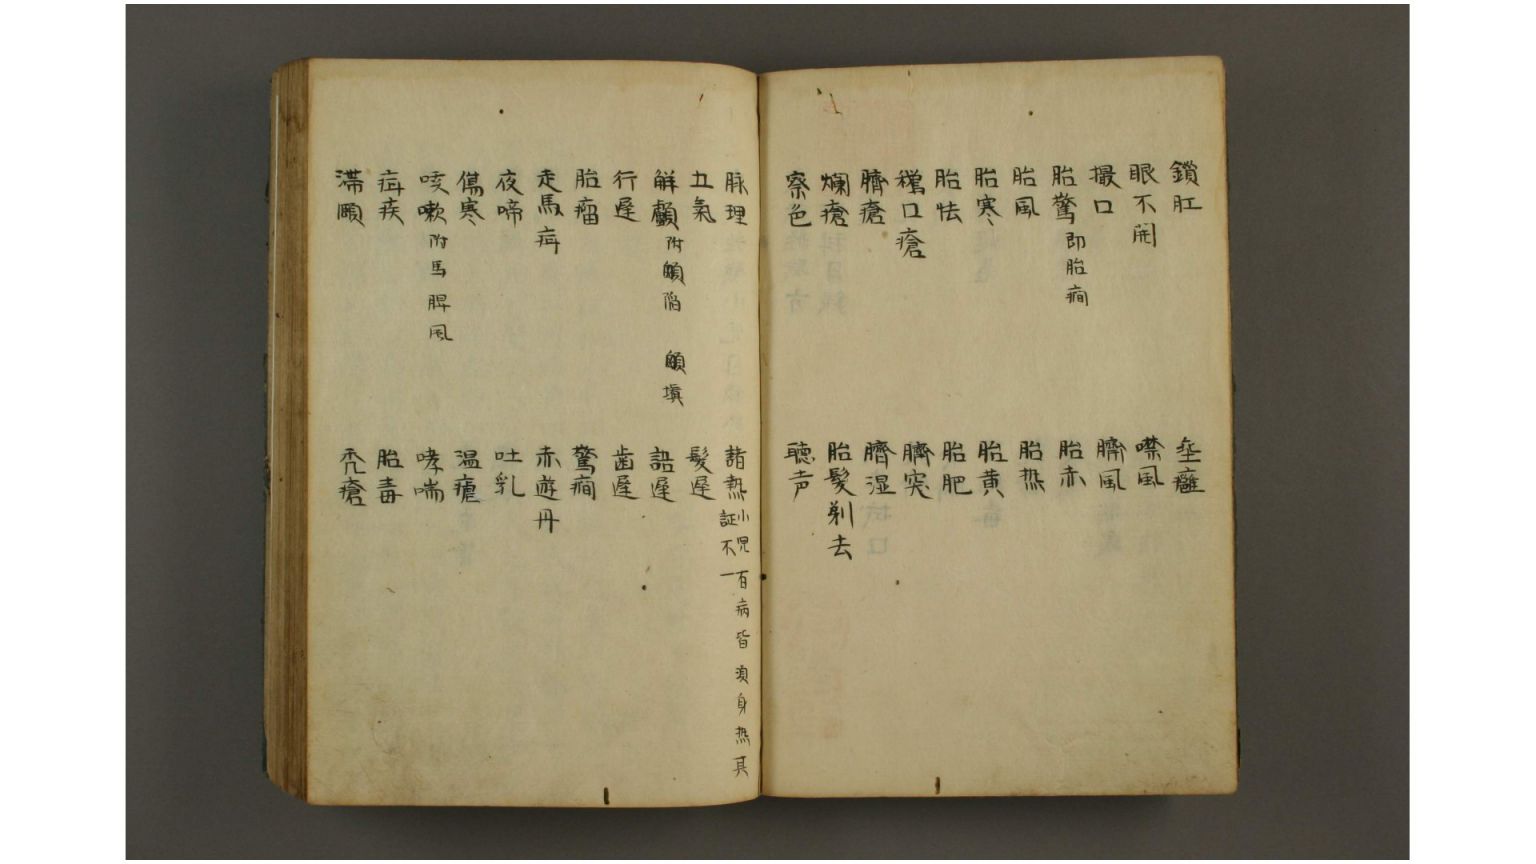 鎖肛
垂癰
眼不開
噤風
撮口
臍風
胎驚 即胎癇
胎赤
胎風
胎热
胎寒
胎黄
胎怯
胎肥
鵞口瘡
臍突
臍瘡
臍湿
爛瘡
胎髮剃去
察色
聴声
脉理
諸热 小児百病皆須身热其
証不一
五氣
髮遅
解顱 附顖陥 顖塡
語遅
行遅
歯遅
胎瘤
驚癇
走馬疳
赤遊丹
夜啼
吐乳
傷寒
温瘧
咳嗽 附馬脾風
哮喘
疳疾
胎毒
滞頤
禿瘡